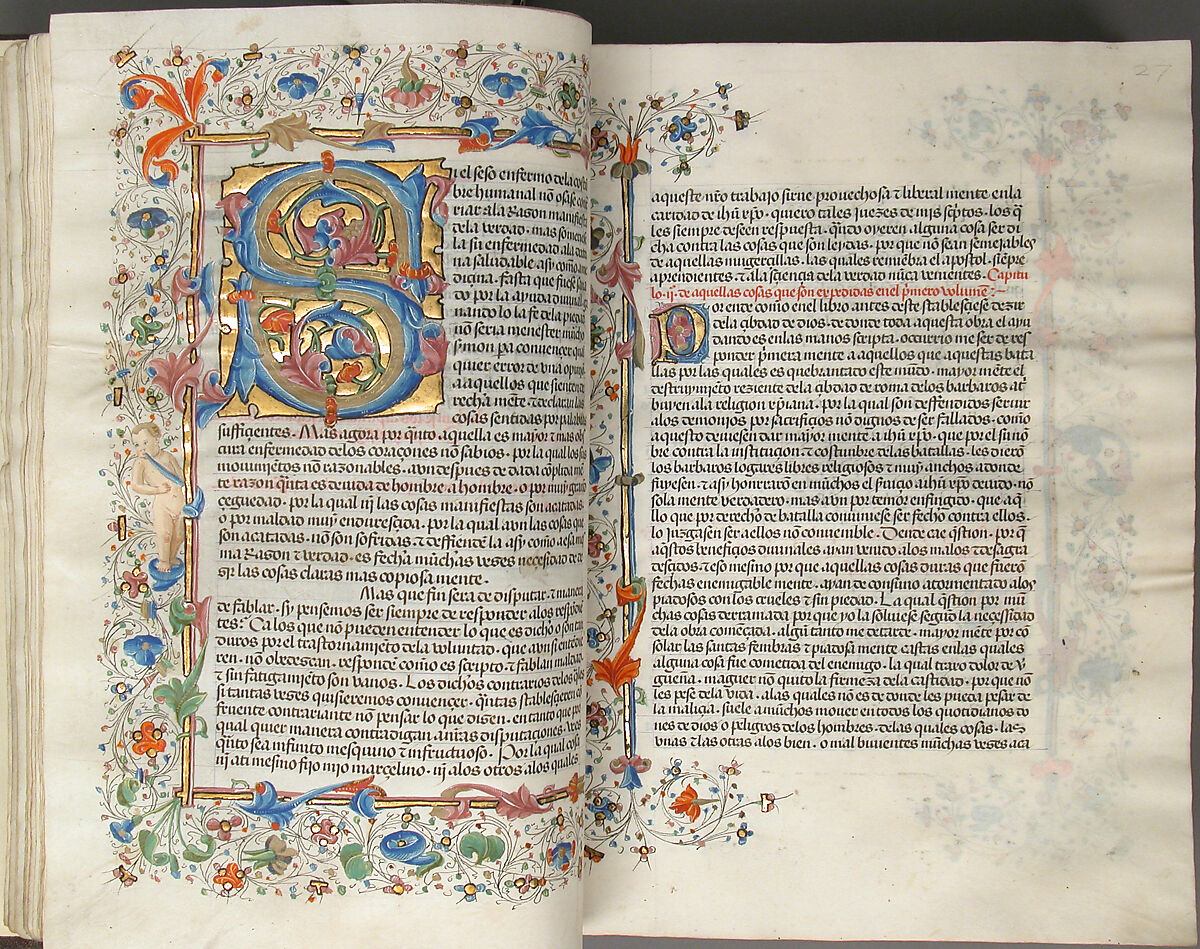 Si el seso enfermo dela costũ
bre humanal nõ osase contra
riar ala Razon manifiesta
dela verdad . mas sometiese
la su enfermedad ala dotri
na saludable asy como ame
diçina . fasta que fuese sana
do por la ayuda diuinal . ga
nando lo la fe dela piedad
nõ seria menester mũcho
sermon pa convençer qual
quier error de vna opinion
a aquellos que sienten de
recha mẽte ⁊ declaran las
cosas sentidas por palabras
suffiçientes . Mas agora por q̃nto aquella es mayor ⁊ mas obs
cura enfermedad delos coraçones nõ sabios . por la qual los sus
mouimiẽtos nõ razonables . avn despues de dada cõplida mẽ
te razon q̃nta es deuida de hombre a hombre . o por muy grand
çeguedad . por la qual nj̃ las cosas manifiestas son acatadas .
o por maldad muy enduresçida . por la qual avn las cosas que
son acatadas . nõ son sofridas ⁊ deffiendẽ la asy como a esa mis
ma Razon ⁊ verdad . es fecha mũchas vezes neçesidad de de
zir las cosas claras mas copiosa mente .
Mas que fin sera de disputar . ⁊ manera
de fablar . sy pensemos ser siempre de responder alos respondiẽ
tes : Ca los que nõ pueden entender lo que es dicho o son tan
duros por el trastornamjẽto dela voluntad . que avnq̃ entiendã
ren . nõ obedezcan . respondẽ como es scripto . ⁊ fablan maldad .
⁊ sin fatigamiẽto son vanos . Los dichos contrarios delos q̃les
si tantas vezes quisieremos convençer . q̃ntas establesçieren cõ
fruente contrariante nõ pensar lo que dizen . en tanto que por
qual quier manera contradigan anr̃as disputaçiones . veес
q̃nto sea infinito mesquino ⁊ infructuoso . Por la qual cosa
nj̃ ati mesmo fijo mjo marçelino . nj̃ alos otros alos quales
27
aqueste nr̃o trabajo sirue prouechosa ⁊ liberal mente enla
caridad de ihũ xp̃o . quiero tales juezes de mjs scriptos . los q̃
les siempre deseen respuesta . q̃ndo oyeren . alguna cosa ser di
cha contra las cosas que son leydas . por que nõ sean semejables
de aquellas mugerçillas . las quales remiẽbra el apostol . siẽpre
aprendientes . ⁊ ala sçiençia dela verdad nũca venientes . Capitu
lo . ij . de aquellas cosas que son expedidas en el p̃mero volumẽ :-
POr ende como enel libro antes deste stablesçiese dezir
dela çibdad de dios . de donde toda aquesta obra el ayu
dando es enlas manos scripta . occurrio me ser de res
ponder p̃mera mente a aquellos que aquestas bata
llas por las quales es quebrantado este mũdo . mayor mẽte el
destruymiẽto reziente dela çibdad de roma delos barbaros atr̃
buyen ala religion xp̃iana . por la qual son deffendidos seruir
alos demonjos por sacrifiçios nõ dignos de ser fallados . como
aquesto deuiesen dar mayor mente a ihũ xp̃o . que por el su nõ
bre contra la instituçion ⁊ costunbre delas batallas . les dierõ
los barbaros logares libres religiosos ⁊ muy anchos a donde
fuyesen . ⁊ asy honrrarõ en mũchos el seruiçio a ihũ xp̃o deuido . nõ
sola mente verdadero . mas avn por temor enfingido . que aq̃
llo que por derecho de batalla conuiniese ser fecho contra ellos .
lo juzgasen ser a ellos nõ conuenible . Dende cae q̃stion . por q̃
aq̃stos benefiçios diuinales ayan venido . alos malos ⁊ desagra
desçidos . ⁊ eso mesmo por que aquellas cosas duras que fuerõ
fechas enemigable mente . ayan de consuno atormentado alos
piadosos con los crueles ⁊ sin piedad . La qual q̃stion por mũ
chas cosas derramada por que yo la soluiese segund la neçesidad
dela obra començada . algũ tanto me detarde . mayor mẽte por cõ
solar las santas fenbras ⁊ piadosa mente castas enlas quales
alguna cosa fue cometida del enemigo . la qual traxo dolor de v̉
guẽna . maguer nõ quito la firmeza dela castidad . por que nõ
les pese dela vida . alas quales nõ es de donde les pueda pesar de
la maliçia . suele a mũchos mouer en todos los quotidianos do
nes de dios o peligros delos hombres . delas quales cosas . las
vnas ⁊ las otras alos bien . o mal biuientes mũchas vezes aca